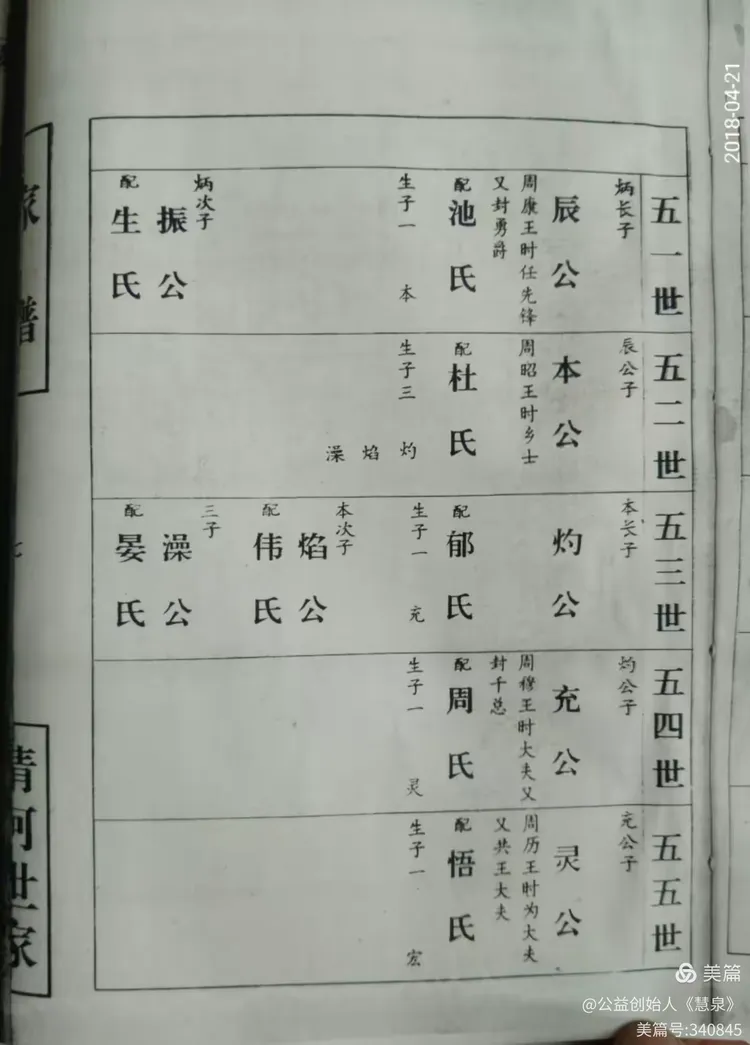 五一世
炳长子
辰公
周康王时任先锋
又封勇爵
配池氏
生子一 本
炳次子
振公
配生氏
五二世
辰公子
本公
周昭王时乡士
配杜氏
生子三 灼 焰 澡
五三世
本长子
灼公
配郁氏
生子一 充
本次子
焰公
配伟氏
三子
澡公
配晏氏
五四世
灼公子
充公
周穆王时大夫又
封千总
配周氏
生子一 灵
五五世
充公子
灵公
周历王时为大夫
又共王大夫
配悟氏
生子一 宏
家谱
七
清河世家
2018-04-21
美篇
@公益创始人《慧泉》
美篇号:340845